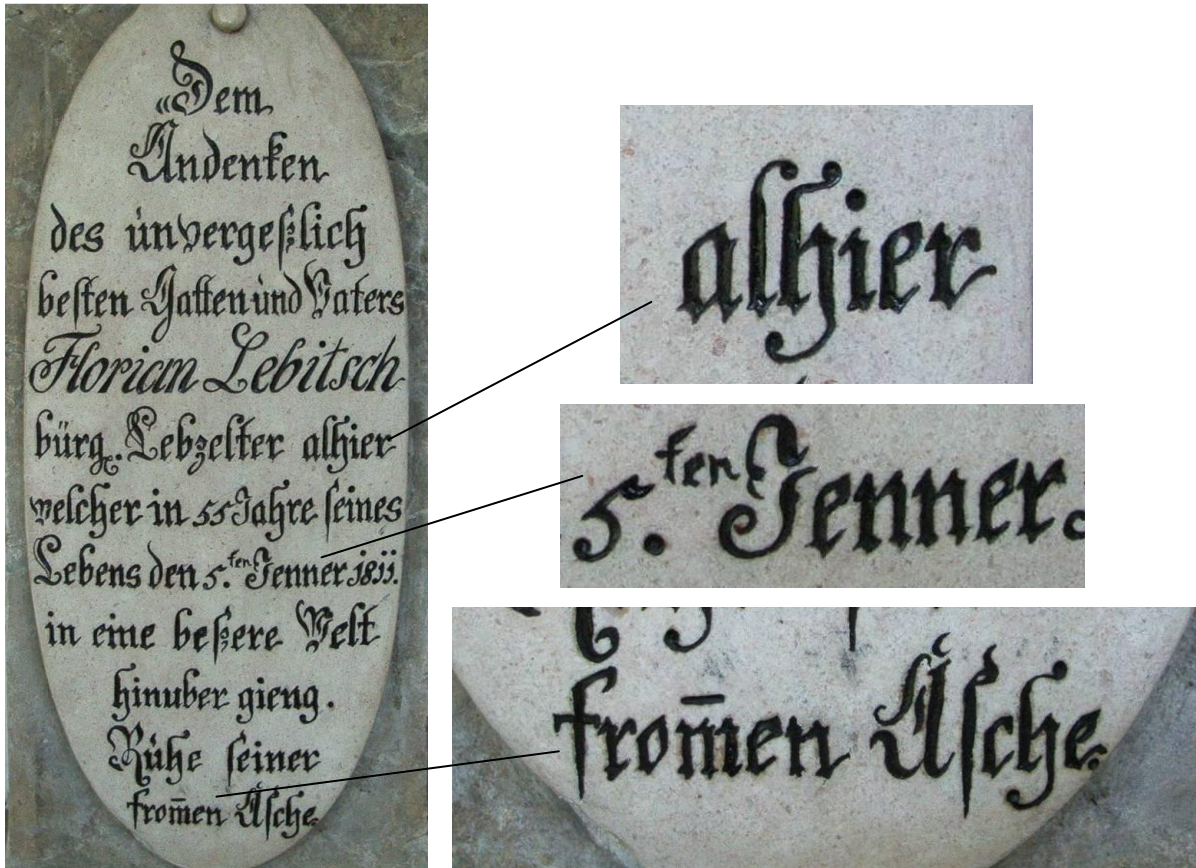 Dem
Andenken
des unvergeßlich
besten Gatten und Vaters
Florian Lebitsch
bürg. Lebzelter alhier
welcher in 55 Jahre seines
Lebens den 5.ten Jenner 1811.
in eine beßere Welt
hinuber gieng.
Ruhe seiner
from̄en Asche.
alhier
5.ten Jenner.
from̄en Asche.